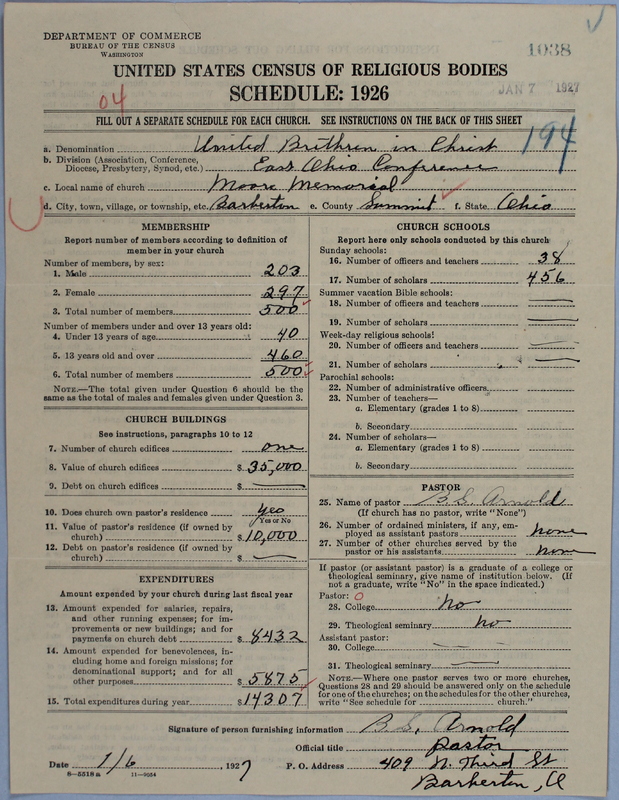 DEPARTMENT OF COMMERCE
BUREAU OF THE CENSUS
WASHINGTON
1038
JAN 7 1927
UNITED STATES CENSUS OF RELIGIOUS BODIES
SCHEDULE: 1926
04
FILL OUT A SEPARATE SCHEDULE FOR EACH CHURCH. SEE INSTRUCTIONS ON THE BACK OF THIS SHEET
194
a. Denomination United Brethren in Christ
b. Division (Association, Conference,
Diocese, Presbytery, Synod, etc.) East Ohio Conference
c. Local name of church Moore Memorial
d. City, town, village, or township, etc. Barberton e. County Summit f. State Ohio
MEMBERSHIP
Report number of members according to definition of
member in your church
Number of members, by sex:
1. Male 203
2. Female 297
3. Total number of members 500
Number of members under and over 13 years old:
4. Under 13 years of age 40
5. 13 years old and over 460
6. Total number of members 500
NOTE.—The total given under Question 6 should be
same as the total of males and females given under Question 3.
CHURCH BUILDINGS
See instructions, paragraphs 10 to 12
7. Number of church edifices one
8. Value of church edifices $ 35,000
9. Debt on church edifices $ —
10. Does church own pastor's residence? Yes
Yes or No
11. Value of pastor's residence (if owned by
church) $ 10,000
12. Debt on pastor's residence (if owned by
church) $ —
EXPENDITURES
Amount expended by your church during last fiscal year
13. Amount expended for salaries, repairs,
and other running expenses; for im-
provements or new buildings; and for
payments on church debt $ 8432
14. Amount expended for benevolences, in-
cluding home and foreign missions; for
denominational support; and for all
other purposes $ 5875
15. Total expenditures during year $ 14307
CHURCH SCHOOLS
Report here only schools conducted by this church
Sunday schools:
16. Number of officers and teachers 38
17. Number of scholars 456
Summer vacation Bible schools:
18. Number of officers and teachers —
19. Number of scholars —
Week-day religious schools:
20. Number of officers and teachers —
21. Number of scholars —
Parochial schools:
22. Number of administrative officers
23. Number of teachers—
a. Elementary (grades 1 to 8)
b. Secondary
24. Number of scholars—
a. Elementary (grades 1 to 8)
b. Secondary
PASTOR
25. Name of pastor B. S. Arnold
(If church has no pastor, write "None")
26. Number of ordained ministers, if any, em-
ployed as assistant pastors none
27. Number of other churches served by the
pastor or his assistants none
If pastor (or assistant pastor) is a graduate of a college or
theological seminary, give name of institution below. (If
not a graduate, write "No" in the space indicated.)
Pastor: O
28. College No
29. Theological seminary No
Assistant pastor:
30. College —
31. Theological seminary —
NOTE.—Where one pastor serves two or more churches,
Questions 28 and 29 should be answered only on the schedule
for one of the churches; on the schedules for the other churches,
write "See schedule for church."
Signature of person furnishing information B. S. Arnold
Official title Pastor
Date 1/6, 1927 P. O. Address 409 N. Third St
8—5518a 11—9034
Barberton, O